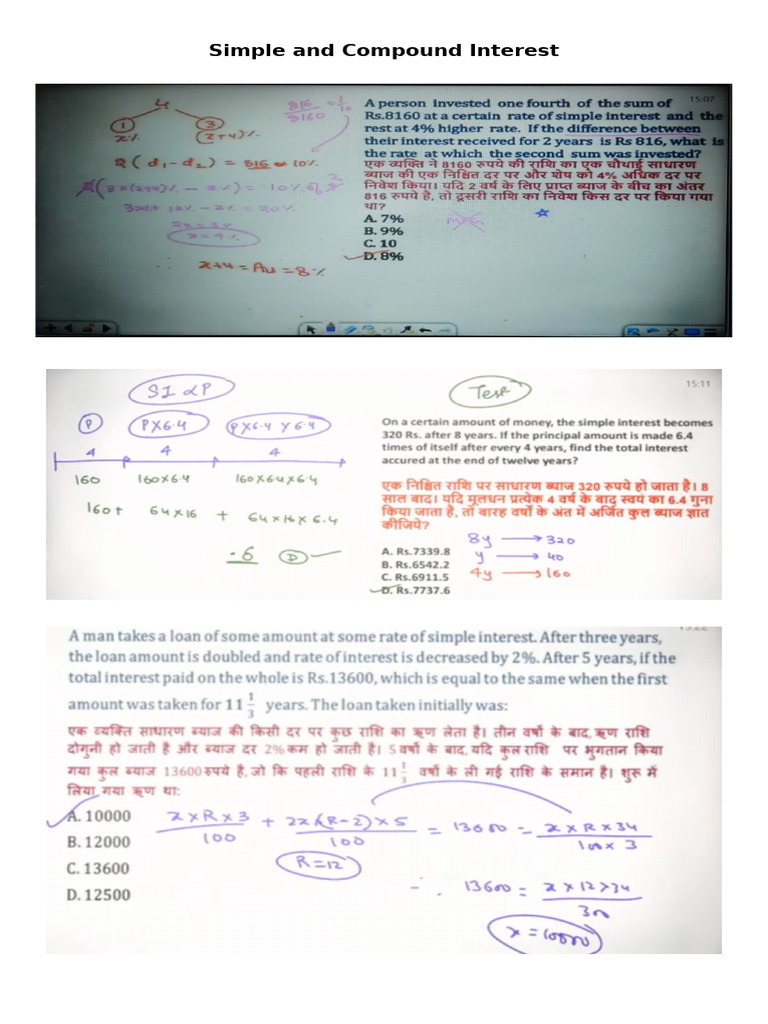 Simple and Compound Interest
4
1 3
x% (x+4)%
2 (d₁-d₂) = 816 10%
(3x(x+4)% - x%) = 10%
3x+12% - x% = 20%
2x = 8%
x = 4%
∴ x+4 = 4+4 = 8%
816/8160 = 1/10
15:07
A person invested one fourth of the sum of
Rs.8160 at a certain rate of simple interest and the
rest at 4% higher rate. If the difference between
their interest received for 2 years is Rs 816, what is
the rate at which the second sum was invested?
एक व्यक्ति ने 8160 रुपये की राशि का एक चौथाई साधारण
ब्याज की एक निश्चित दर पर और शेष को 4% अधिक दर पर
निवेश किया। यदि 2 वर्ष के लिए प्राप्त ब्याज के बीच का अंतर
816 रुपये है, तो दूसरी राशि का निवेश किस दर पर किया गया
था?
A. 7%
B. 9%
C. 10
D. 8%
SI ∝ P
Test
15:11
P P×6.4 P×6.4×6.4
4 4 4
160 160×6.4 160×6.4×6.4
160 + 64×16 + 64×16×6.4
.6 D
On a certain amount of money, the simple interest becomes
320 Rs. after 8 years. If the principal amount is made 6.4
times of itself after every 4 years, find the total interest
accured at the end of twelve years?
एक निश्चित राशि पर साधारण ब्याज 320 रुपये हो जाता है। 8
साल बाद। यदि मूलधन प्रत्येक 4 वर्ष के बाद स्वयं का 6.4 गुना
किया जाता है, तो बारह वर्षों के अंत में अर्जित कुल ब्याज ज्ञात
कीजिये?
8y → 320
y → 40
4y → 160
A. Rs.7339.8
B. Rs.6542.2
C. Rs.6911.5
D. Rs.7737.6
A man takes a loan of some amount at some rate of simple interest. After three years,
the loan amount is doubled and rate of interest is decreased by 2%. After 5 years, if the
total interest paid on the whole is Rs.13600, which is equal to the same when the first
amount was taken for 11 1/3 years. The loan taken initially was:
एक व्यक्ति साधारण ब्याज की किसी दर पर कुछ राशि का ऋण लेता है। तीन वर्षों के बाद, ऋण राशि
दोगुनी हो जाती है और ब्याज दर 2% कम हो जाती है। 5 वर्षों के बाद, यदि कुल राशि पर भुगतान किया
गया कुल ब्याज 13600 रुपये है, जो कि पहली राशि के 11 1/3 वर्षों के ली गई राशि के समान है। शुरू में
लिया गया ऋण था:
A. 10000
B. 12000
C. 13600
D. 12500
x×R×3/100 + 2x×(R-2)×5/100 = 13600 = x×R×34/100×3
R=12
∴ 13600 = x×12×34/300
x = 10000